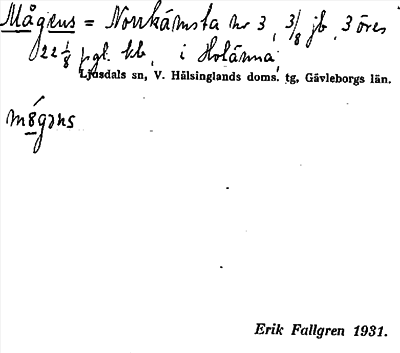 Mågens = Norrkámsta nr 3, 3/8 jb, 3 öres
22 1/8 pgl. kb, i Holänna,
Ljusdals sn, V. Hälsinglands doms. tg, Gävleborgs län.
Erik Fallgren 1931.